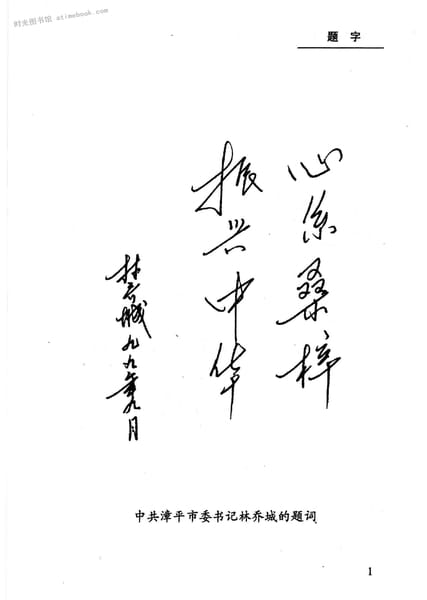 时光图书馆 atimebook.com
题 字
心系桑梓
振兴中华
林乔城 九九年九月
中共漳平市委书记林乔城的题词
1